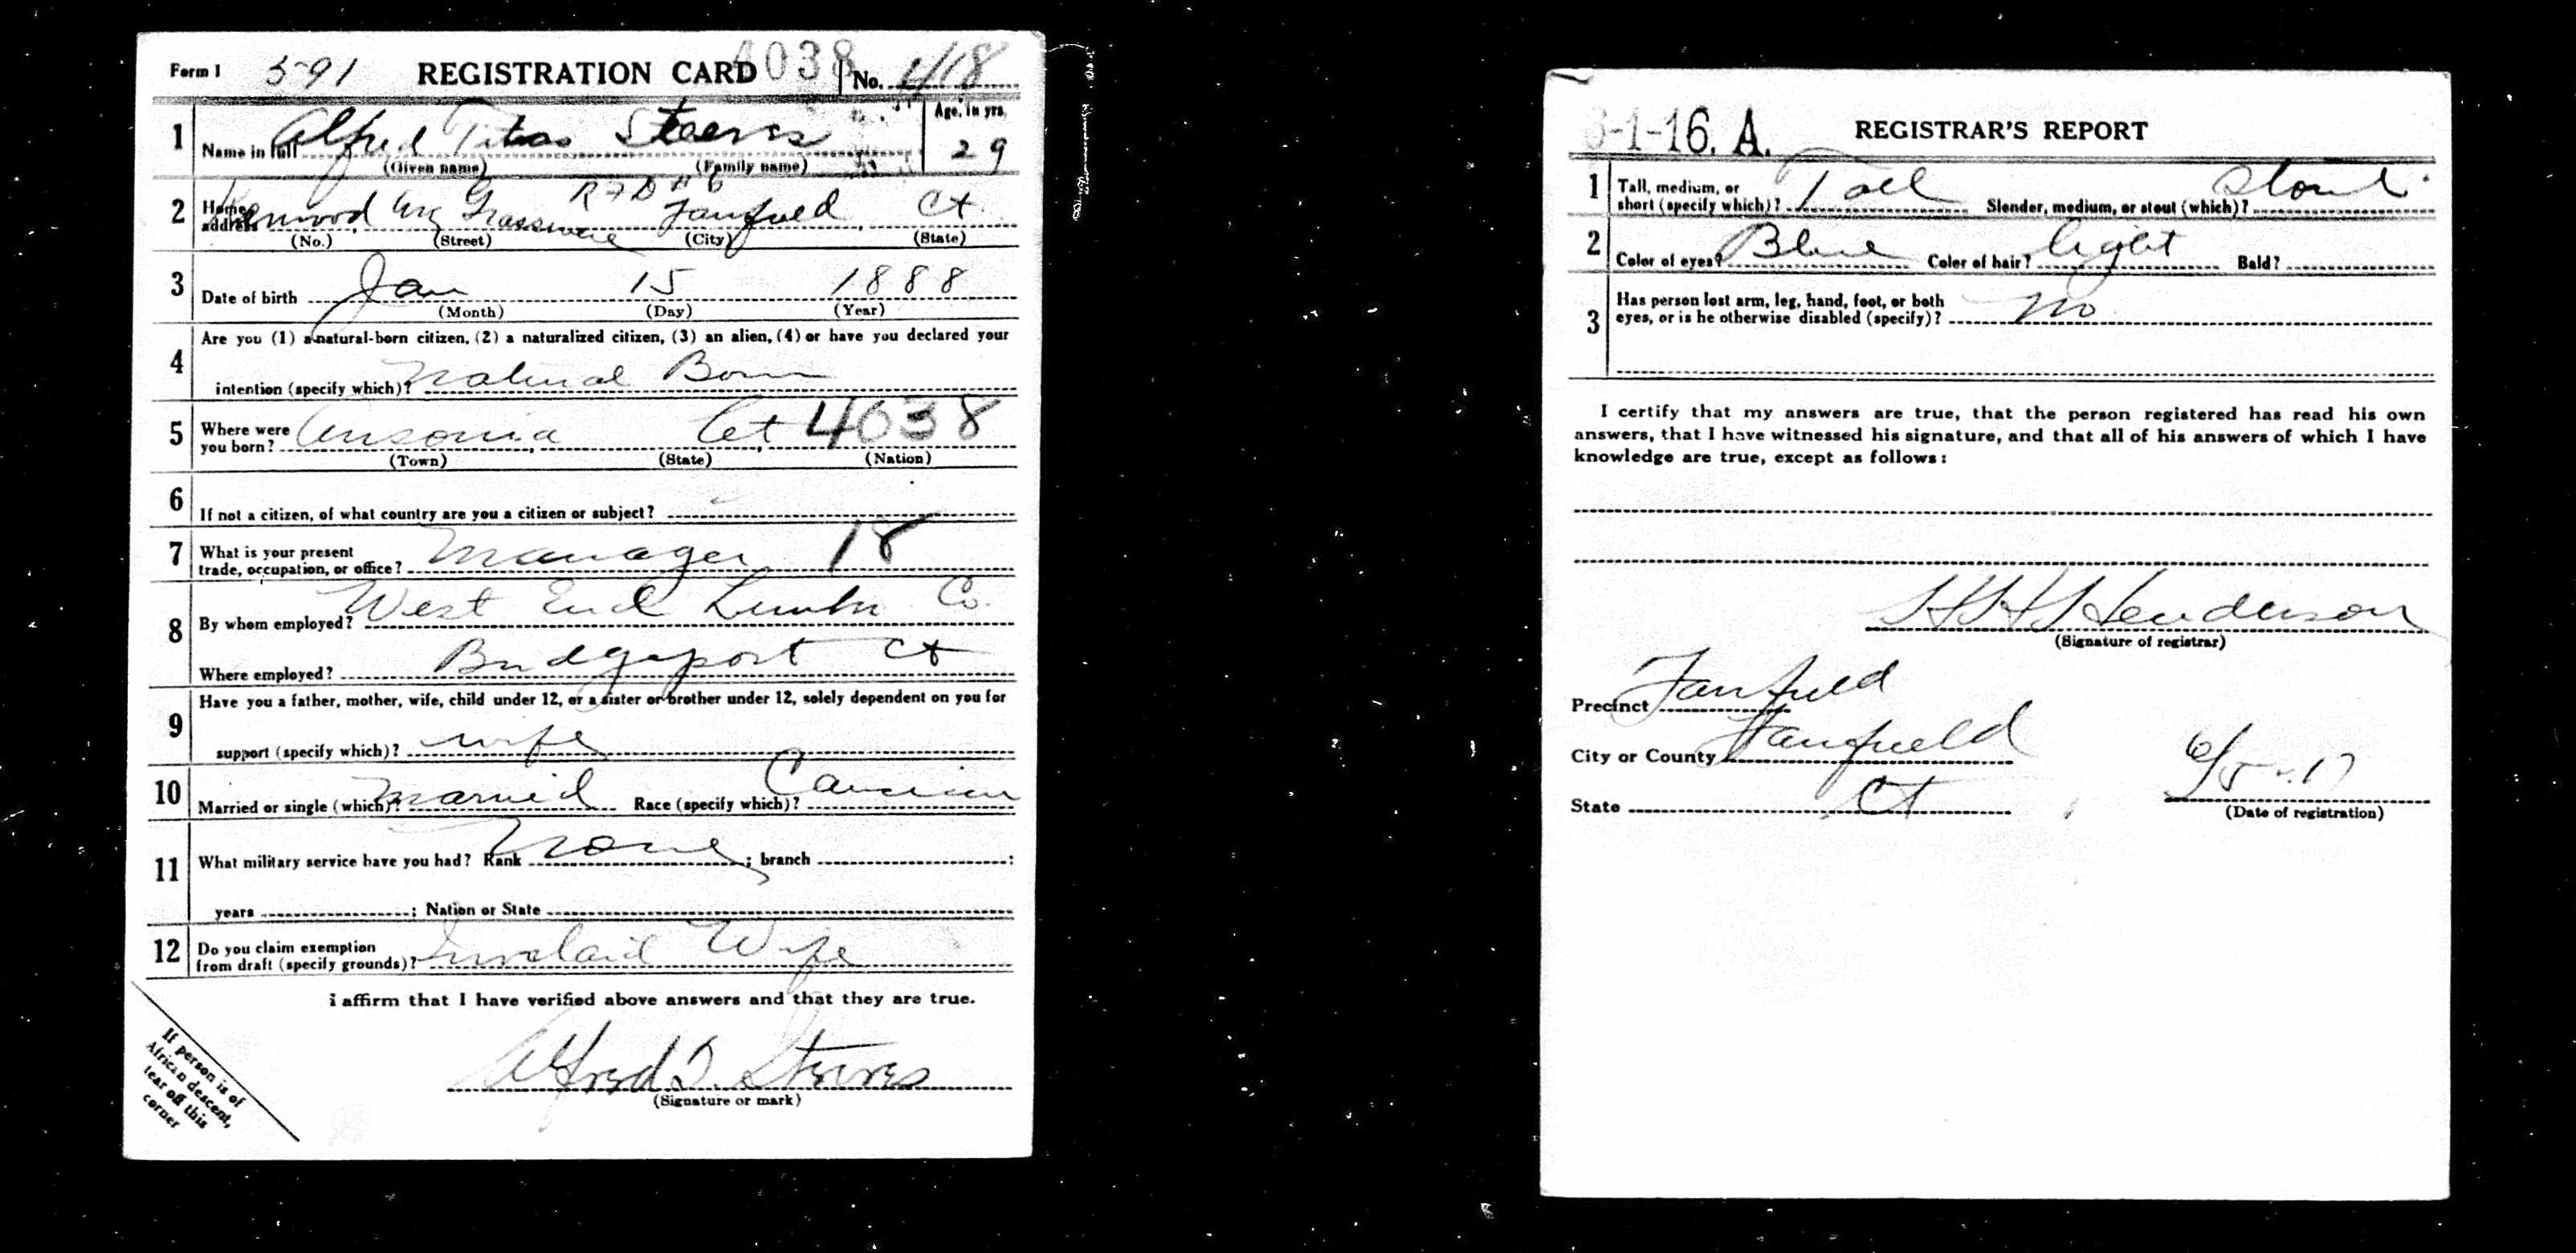 Form 1 591 REGISTRATION CARD 4038 No. 418
1 Name in full Alfred Titus Steeves Age, in yrs. 29
(Given name) (Family name)
R F D # 6
2 Home address Kenwood Ave Fairfield Ct
(No.) (Street) (City) (State)
3 Date of birth Jan 15 1888
(Month) (Day) (Year)
4 Are you (1) a natural-born citizen, (2) a naturalized citizen, (3) an alien, (4) or have you declared your
intention (specify which)? Natural Born
5 Where were you born? Ansonia Ct 4038
(Town) (State) (Nation)
6 If not a citizen, of what country are you a citizen or subject?
7 What is your present trade, occupation, or office? Manager 18
8 By whom employed? West End Lumber Co.
Where employed? Bridgeport Ct
9 Have you a father, mother, wife, child under 12, or a sister or brother under 12, solely dependent on you for
support (specify which)? wife
10 Married or single (which)? Married Race (specify which)? Caucasian
11 What military service have you had? Rank None ; branch ;
years ; Nation or State
12 Do you claim exemption from draft (specify grounds)? Invalaid Wife
I affirm that I have verified above answers and that they are true.
Alfred T. Steeves
(Signature or mark)
If person is of
African descent,
tear off this
corner
6-1-16. A. REGISTRAR'S REPORT
1 Tall, medium, or short (specify which)? Tall Slender, medium, or stout (which)? Stout
2 Color of eyes? Blue Color of hair? Light Bald?
3 Has person lost arm, leg, hand, foot, or both
eyes, or is he otherwise disabled (specify)? No
I certify that my answers are true, that the person registered has read his own
answers, that I have witnessed his signature, and that all of his answers of which I have
knowledge are true, except as follows:
H H Henderson
(Signature of registrar)
Precinct Fairfield
City or County Fairfield
State Ct
6/5-17
(Date of registration)